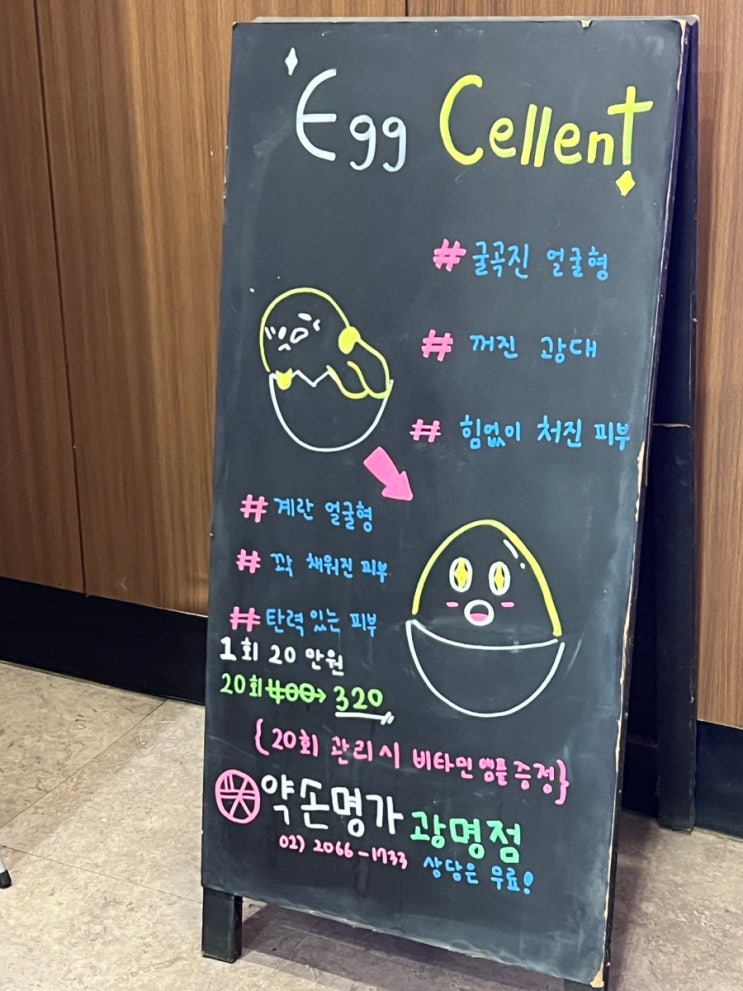 Egg Cellent
# 굴곡진 얼굴형
# 꺼진 광대
# 힘없이 처진 피부
# 계란 얼굴형
# 꽉 채워진 피부
# 탄력 있는 피부
1회 20 만원
20회 400→ 320
{20회 관리시 비타민앰플증정}
약손명가 광명점
02) 2066-1733 상담은 무료!